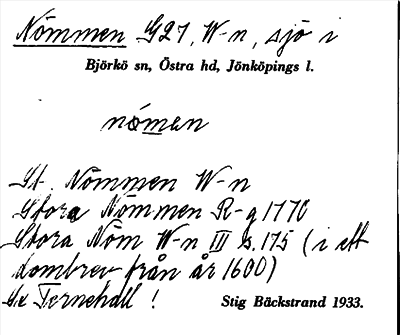 Nömmen G27, W-n, sjö i
Björkö sn, Östra hd, Jönköpings l.
nómen
St. Nömmen W-n
Stora Nömmen R-g 1770
Stora Nöm W-n III s. 175 (i ett
dombrev från år 1600)
Se Ternehall!
Stig Bäckstrand 1933.